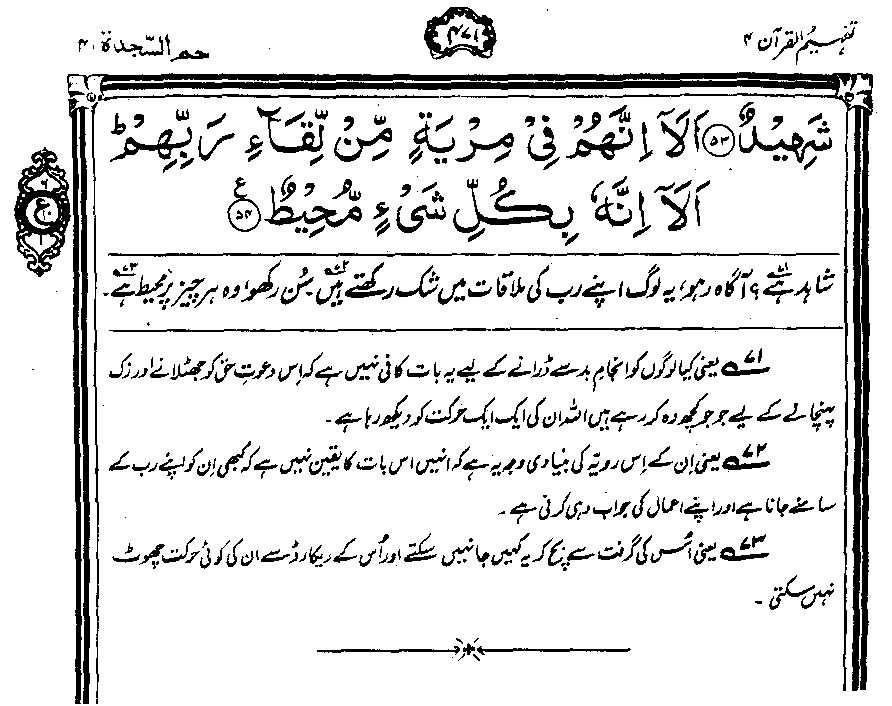 تفہیم القرآن ۴
۴۷۱
حٰم السّجدۃ ۴۱
شَهِيْدٌ ﴿۵۳﴾ اَلَاۤ اِنَّهُمْ فِيْ مِرْيَةٍ مِّنْ لِّقَآءِ رَبِّهِمْ ؕ
اَلَاۤ اِنَّهٗ بِكُلِّ شَيْءٍ مُّحِيْطٌ ﴿۵۴﴾ ع
ع
شاہد ہے؟۷۱ آگاہ رہو، یہ لوگ اپنے رب کی ملاقات میں شک رکھتے ہیں۷۲۔ سُن رکھو، وہ ہر چیز پر محیط ہے۷۳۔
۷۱ یعنی کیا لوگوں کو انجامِ بد سے ڈرانے کے لیے یہ بات کافی نہیں ہے کہ اِس دعوتِ حق کو جھٹلانے اور زک
پہنچانے کے لیے جو جو کچھ وہ کر رہے ہیں اللہ ان کی ایک ایک حرکت کو دیکھ رہا ہے۔
۷۲ یعنی اِن کے اِس رویّہ کی بنیادی وجہ یہ ہے کہ انہیں اس بات کا یقین نہیں ہے کہ کبھی اِن کو اپنے رب کے
سامنے جانا ہے اور اپنے اعمال کی جواب دہی کرنی ہے۔
۷۳ یعنی اُس کی گرفت سے بچ کر یہ کہیں جا نہیں سکتے اور اُس کے ریکارڈ سے ان کی کوئی حرکت چھوٹ
نہیں سکتی۔